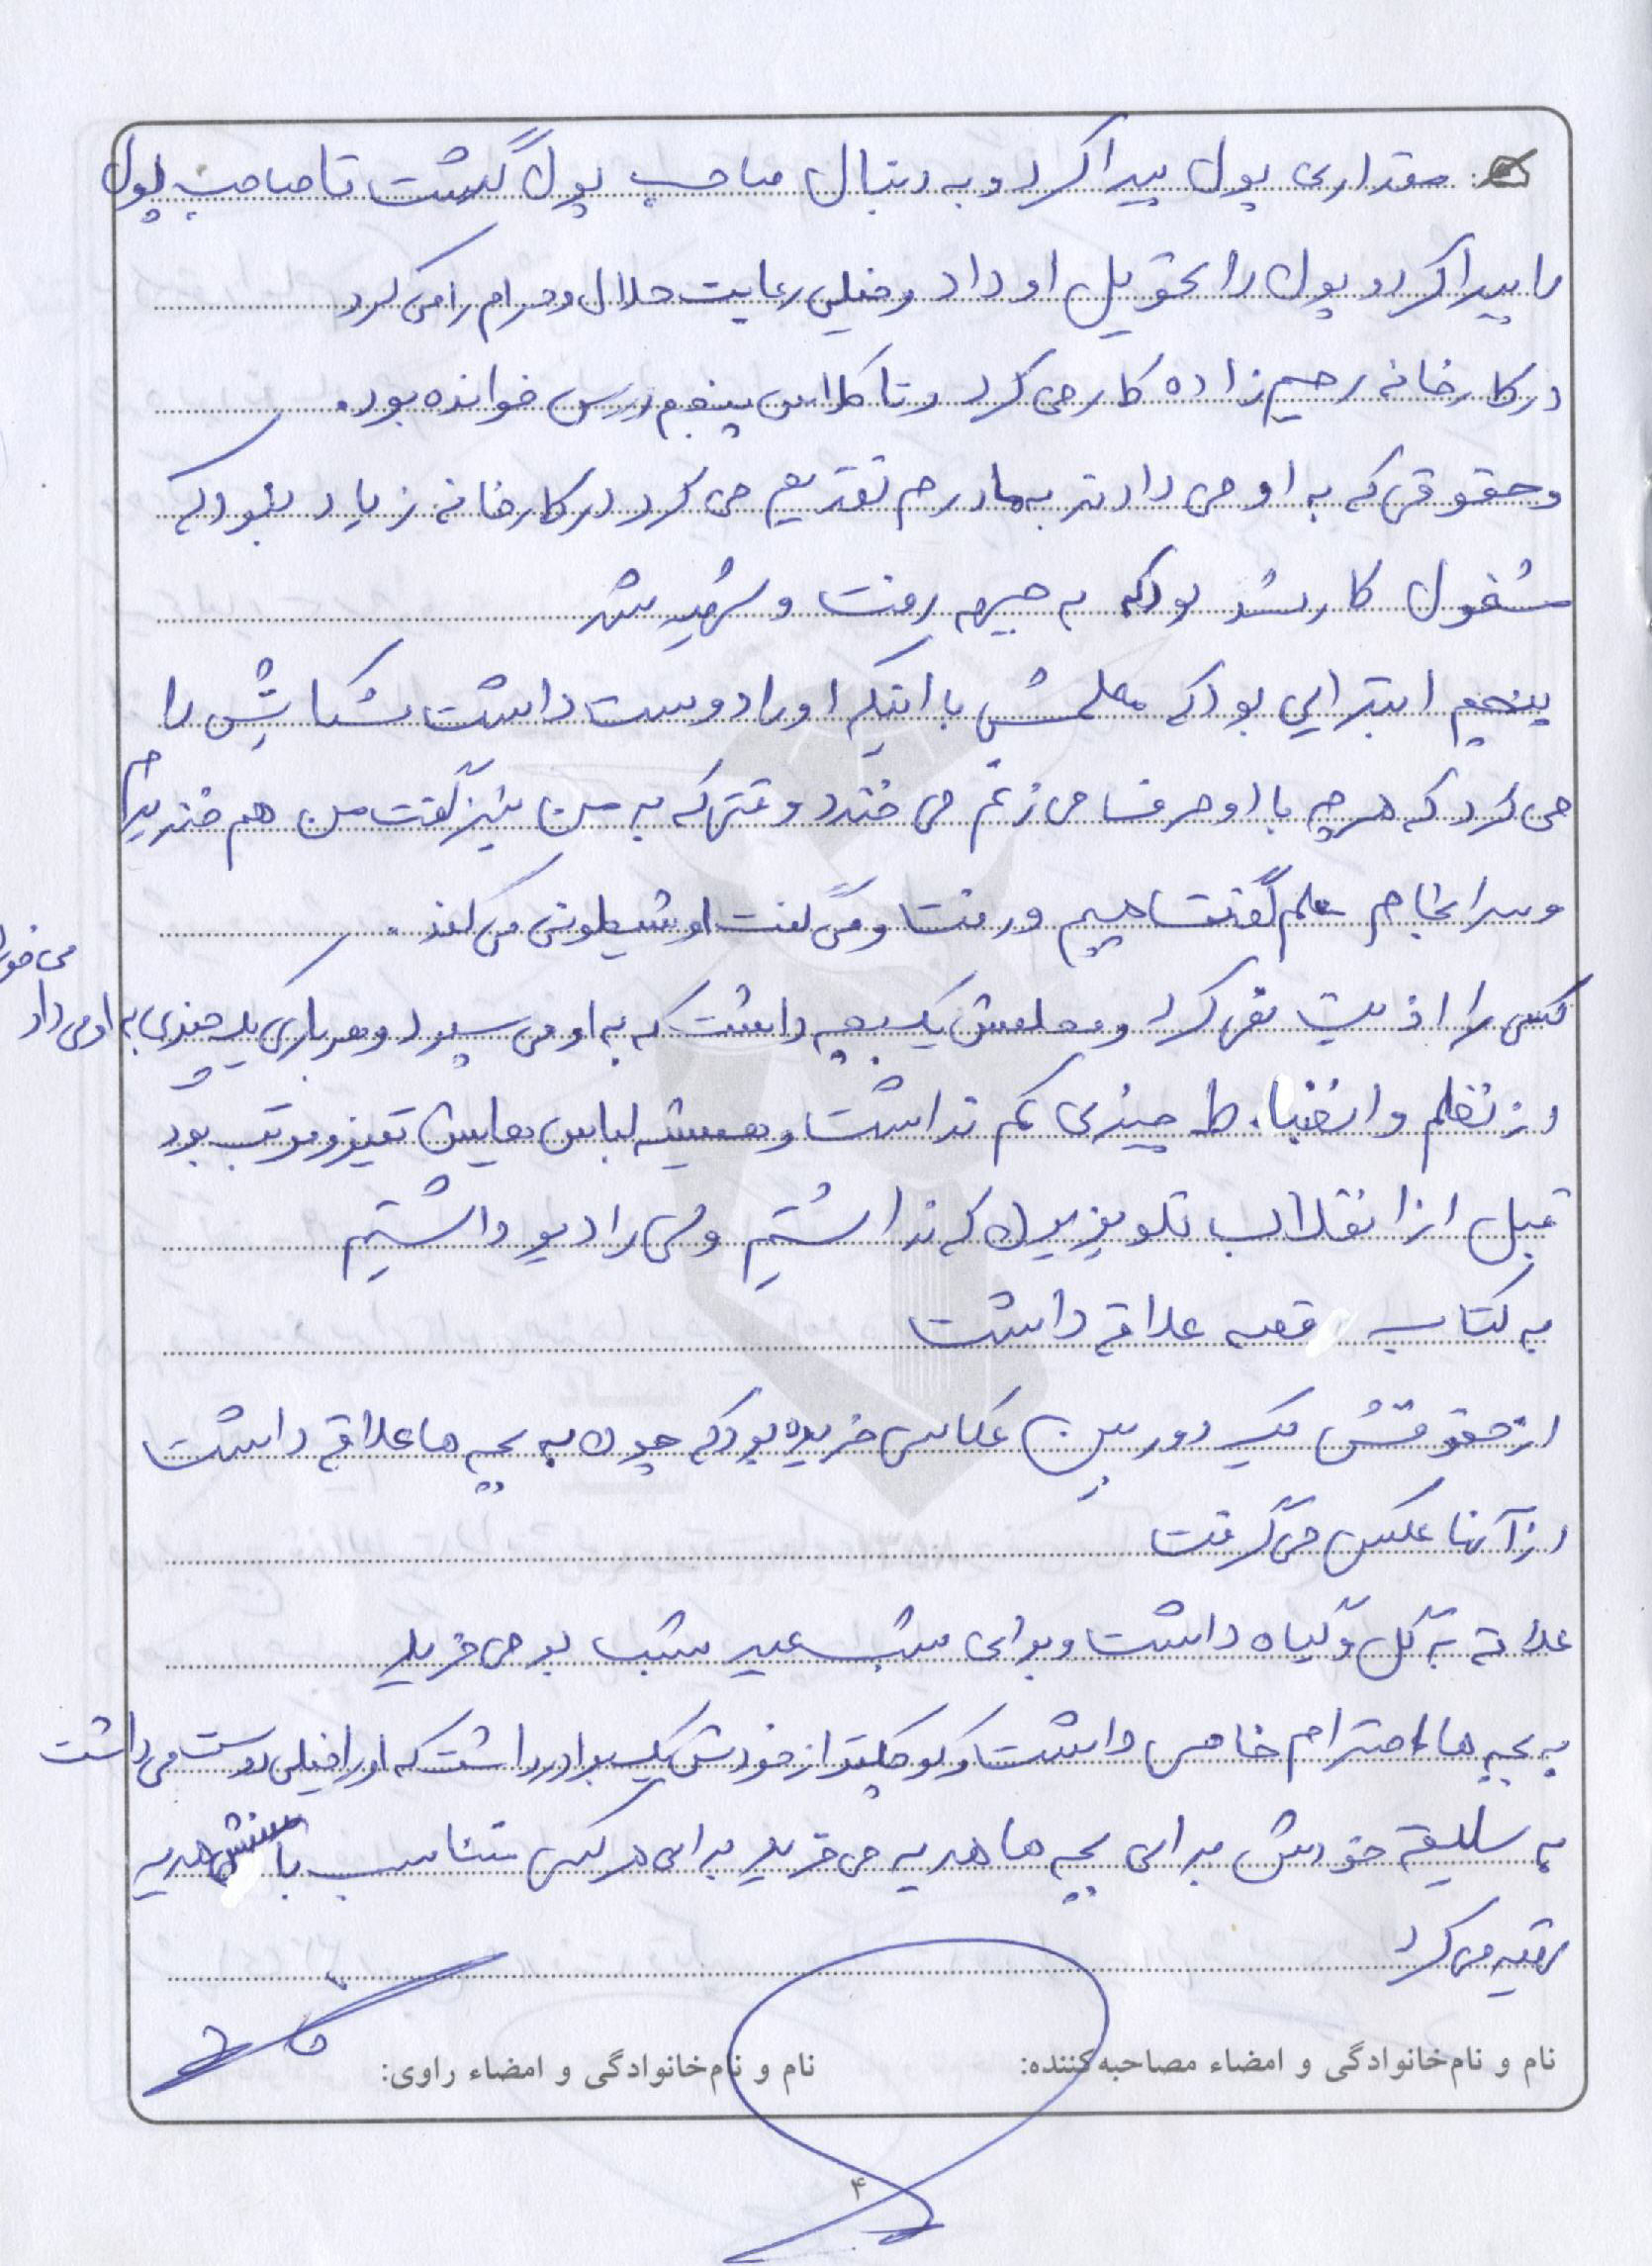 مقداری پول پیدا کرد و به دنبال صاحب پول گشت تا صاحب پول
را پیدا کرد و پول را تحویل او داد و خیلی رعایت حلال و حرام را می کرد
در کارخانه رحیم زاده کار می کرد و تا کلاس پنجم درس خوانده بود.
و حقوقی که به او می دادند به مادرم تقدیم می کرد در کارخانه زیاد نبود که
مشغول کار شد بود که به جبهه رفت و شهید شد
پنجم ابتدایی بود که معلمش با اینکه او را دوست داشت شکایتش را
می کرد که هر چه با او حرف می زنم می خندد وقتی که به من نیز گفت من هم خندیدم
و سرانجام معلم گفت و رفت و می گفت او شیطونی می کند.
کسی را اذیت نمی کرد و معلمش یک بچه داشت که به او می سپرد و هر باری یک چیزی به او می داد
می خورد
از نظم و انضباط چیزی کم نداشت و همیشه لباس هایش تمیز و مرتب بود
قبل از انقلاب تلویزیون که نداشتیم ولی رادیو داشتیم
به کتاب قصه علاقه داشت
از حقوقش یک دوربین عکاسی خریده بود که چون به بچه ها علاقه داشت
از آنها عکس می گرفت
علاقه به گل و گیاه داشت و برای شب عید شب بو می خرید
به بچه ها احترام خاصی داشت و کوچکتر از خودش یک برادر داشت که او را خیلی دوست می داشت
به سلیقه خودش برای بچه ها هدیه می خرید برای هر کس متناسب با سنش هدیه
تهیه می کرد
نام و نام‌خانوادگی و امضاء مصاحبه‌کننده:
نام و نام‌خانوادگی و امضاء راوی:
۴